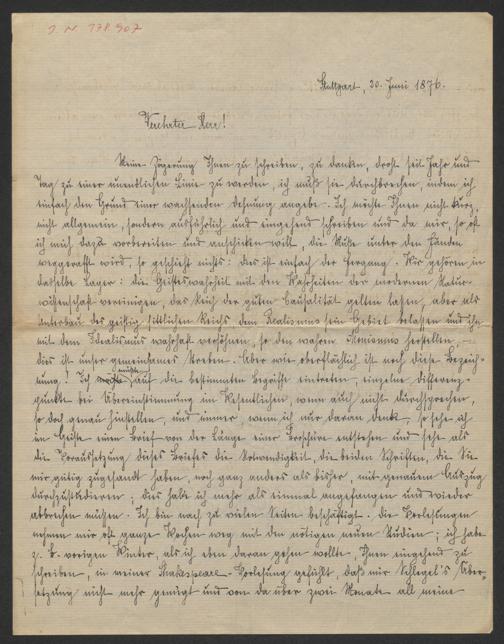 J. N. 178.907
Stuttgart, 30. Juni 1876.
Verehrter Herr!
Meine Zögerung Ihnen zu schreiben, zu danken, droht seit Jahr und
Tag zu einer unendlichen Linie zu werden, ich muß sie durchbrechen, indem ich
einfach den Grund einer wachsenden Dehnung angebe. Ich möchte Ihnen nicht kurz,
nicht allgemein, sondern ausführlich und eingehend schreiben und da mir, so oft
ich mich dazu vorbereiten und anschicken will, die Muße unter den Händen
weggerafft wird, so geschieht nichts: dies ist einfach der Hergang. Wir gehören in
dasselbe Lager: die Geisteswahrheit mit den Wahrheiten der modernen Natur-
wissenschaft vereinigen, das Reich der Causalität gelten lassen, aber als
Unterbau des geistig sittlichen Reichs, dem Realismus sein Gebiet belassen und ihn
mit dem Idealismus wahrhaft versöhnen, so den wahren Monismus herstellen,
dies ist unser gemeinsames Streben. Aber wie oberflächlich ist noch diese Bezeich-
nung! Ich müßte auf die bestimmten Begriffe eintreten, einzelne Differenz-
punkte bei Übereinstimmung im Wesentlichen, wenn auch nicht durchsprechen,
so doch genau hinstellen, und immer wenn ich nur daran denke, so sehe ich
im Geiste einen Brief von der Länge einer Broschüre entstehen und sehe als
die Voraussetzung dieses Briefes die Notwendigkeit, die beiden Schriften, die Sie
mir gütig zugesandt haben, noch ganz anders als bisher, mit genauem Auszug
durchzustudieren; dies habe ich mehr als einmal angefangen und wieder
abbrechen müssen. Ich bin nach zu vielen Seiten beschäftigt. Die Vorlesungen
nehmen mir oft ganze Wochen weg mit den nötigen neuen Studien; ich habe
z. B. vorigen Winter, als ich eben daran gehen wollte, Ihnen eingehend zu
schreiben, in meiner Shakespeare-Vorlesung gefühlt, daß mir Schlegel's Über-
setzung nicht mehr genügt und von da über zwei Monate all meine